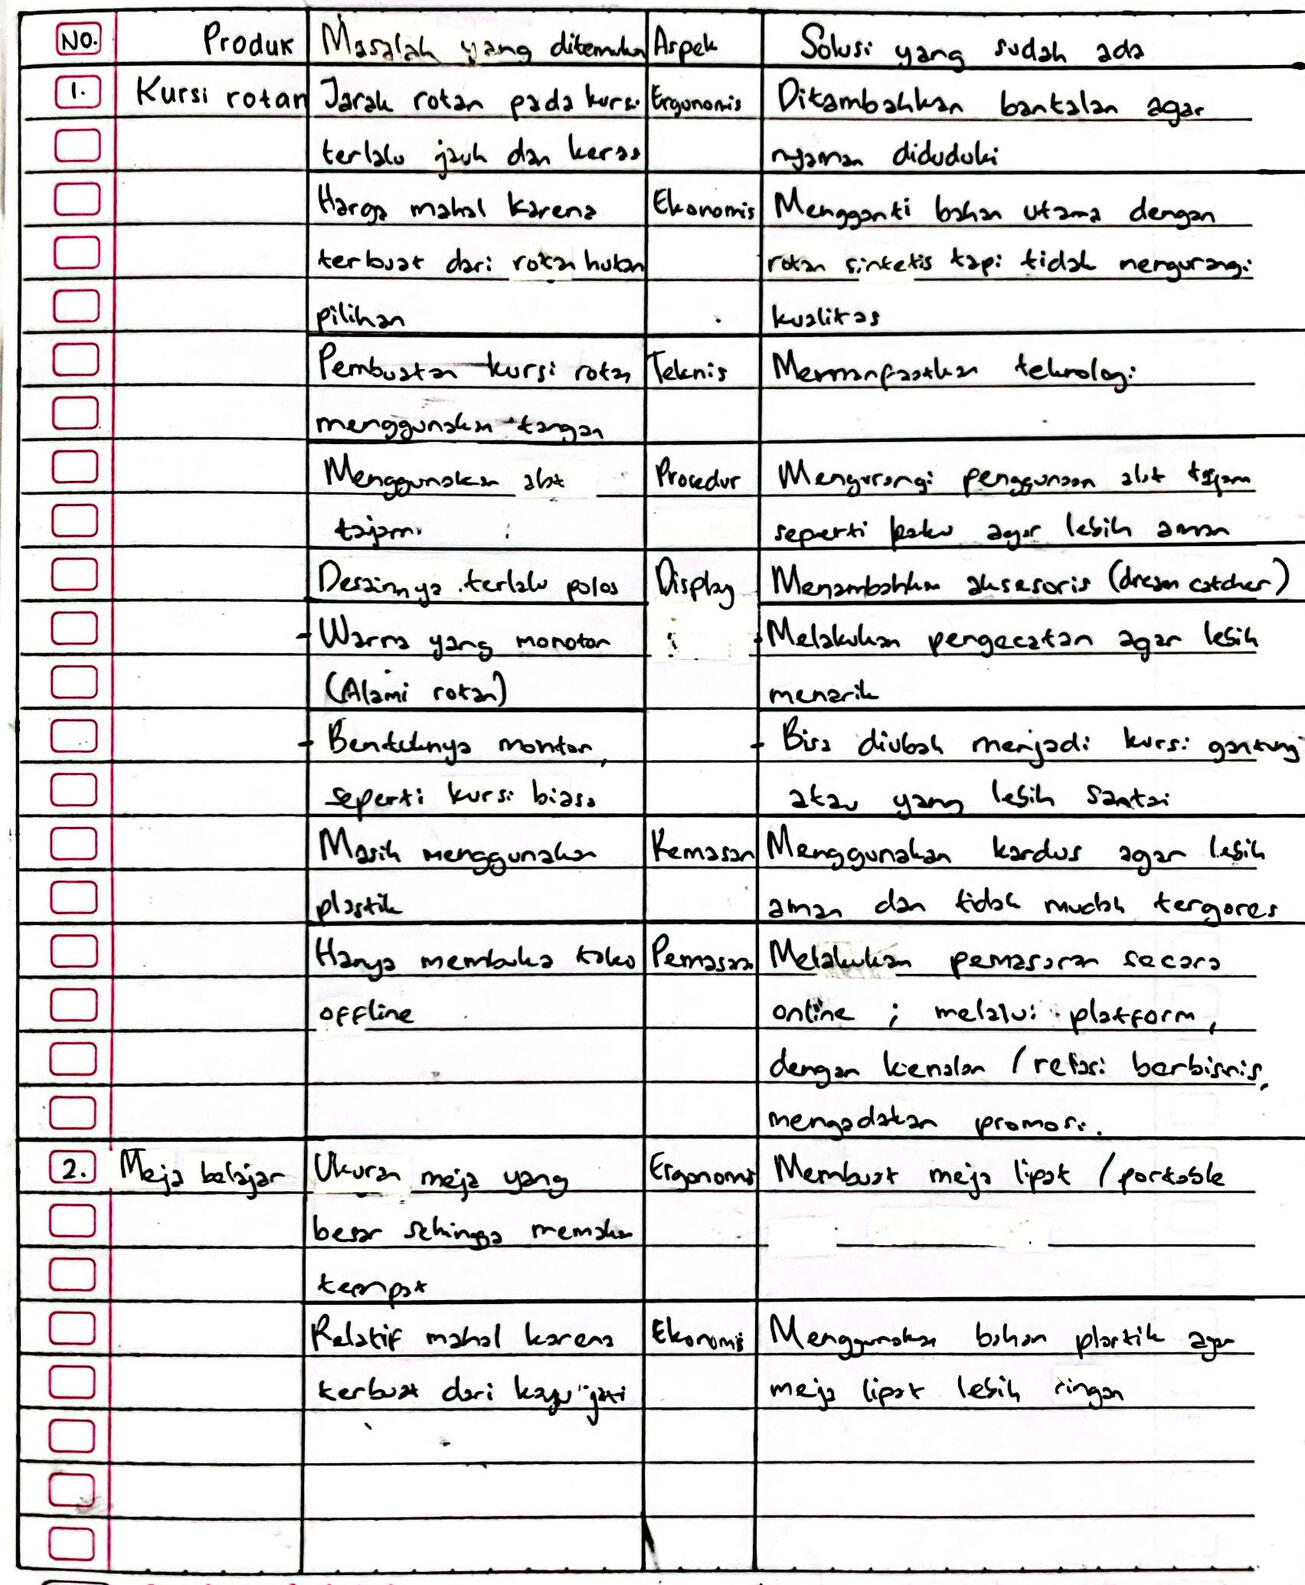 NO. Produk Masalah yang ditemukan Aspek Solusi yang sudah ada
1. Kursi rotan Jarak rotan pada kursi Ergonomis Ditambahkan bantalan agar
terlalu jauh dan keras nyaman diduduki
Harga mahal karena Ekonomis Mengganti bahan utama dengan
terbuat dari rotan hutan rotan sintetis tapi tidak mengurangi
pilihan kualitas
Pembuatan kursi rotan Teknis Memanfaatkan teknologi
menggunakan tangan
Menggunakan alat Procedur Mengurangi penggunaan alat tajam
tajam seperti paku agar lebih aman
Desainnya terlalu polos Display Menambahkan aksesoris (dream catcher)
- Warna yang monoton - Melakukan pengecatan agar lebih
(Alami rotan) menarik
- Bentuknya monton, - Bisa diubah menjadi kursi gantung
seperti kursi biasa atau yang lebih santai
Masih menggunakan Kemasan Menggunakan kardus agar lebih
plastik aman dan tidak mudah tergores
Hanya membuka toko Pemasaran Melakukan pemasaran secara
offline online ; melalui platform,
dengan kenalan / relasi berbisnis,
mengadakan promosi.
2. Meja belajar Ukuran meja yang Ergonomis Membuat meja lipat / portable
besar sehingga memakan
tempat
Relatif mahal karena Ekonomis Menggunakan bahan plastik agar
terbuat dari kayu jati meja lipat lebih ringan